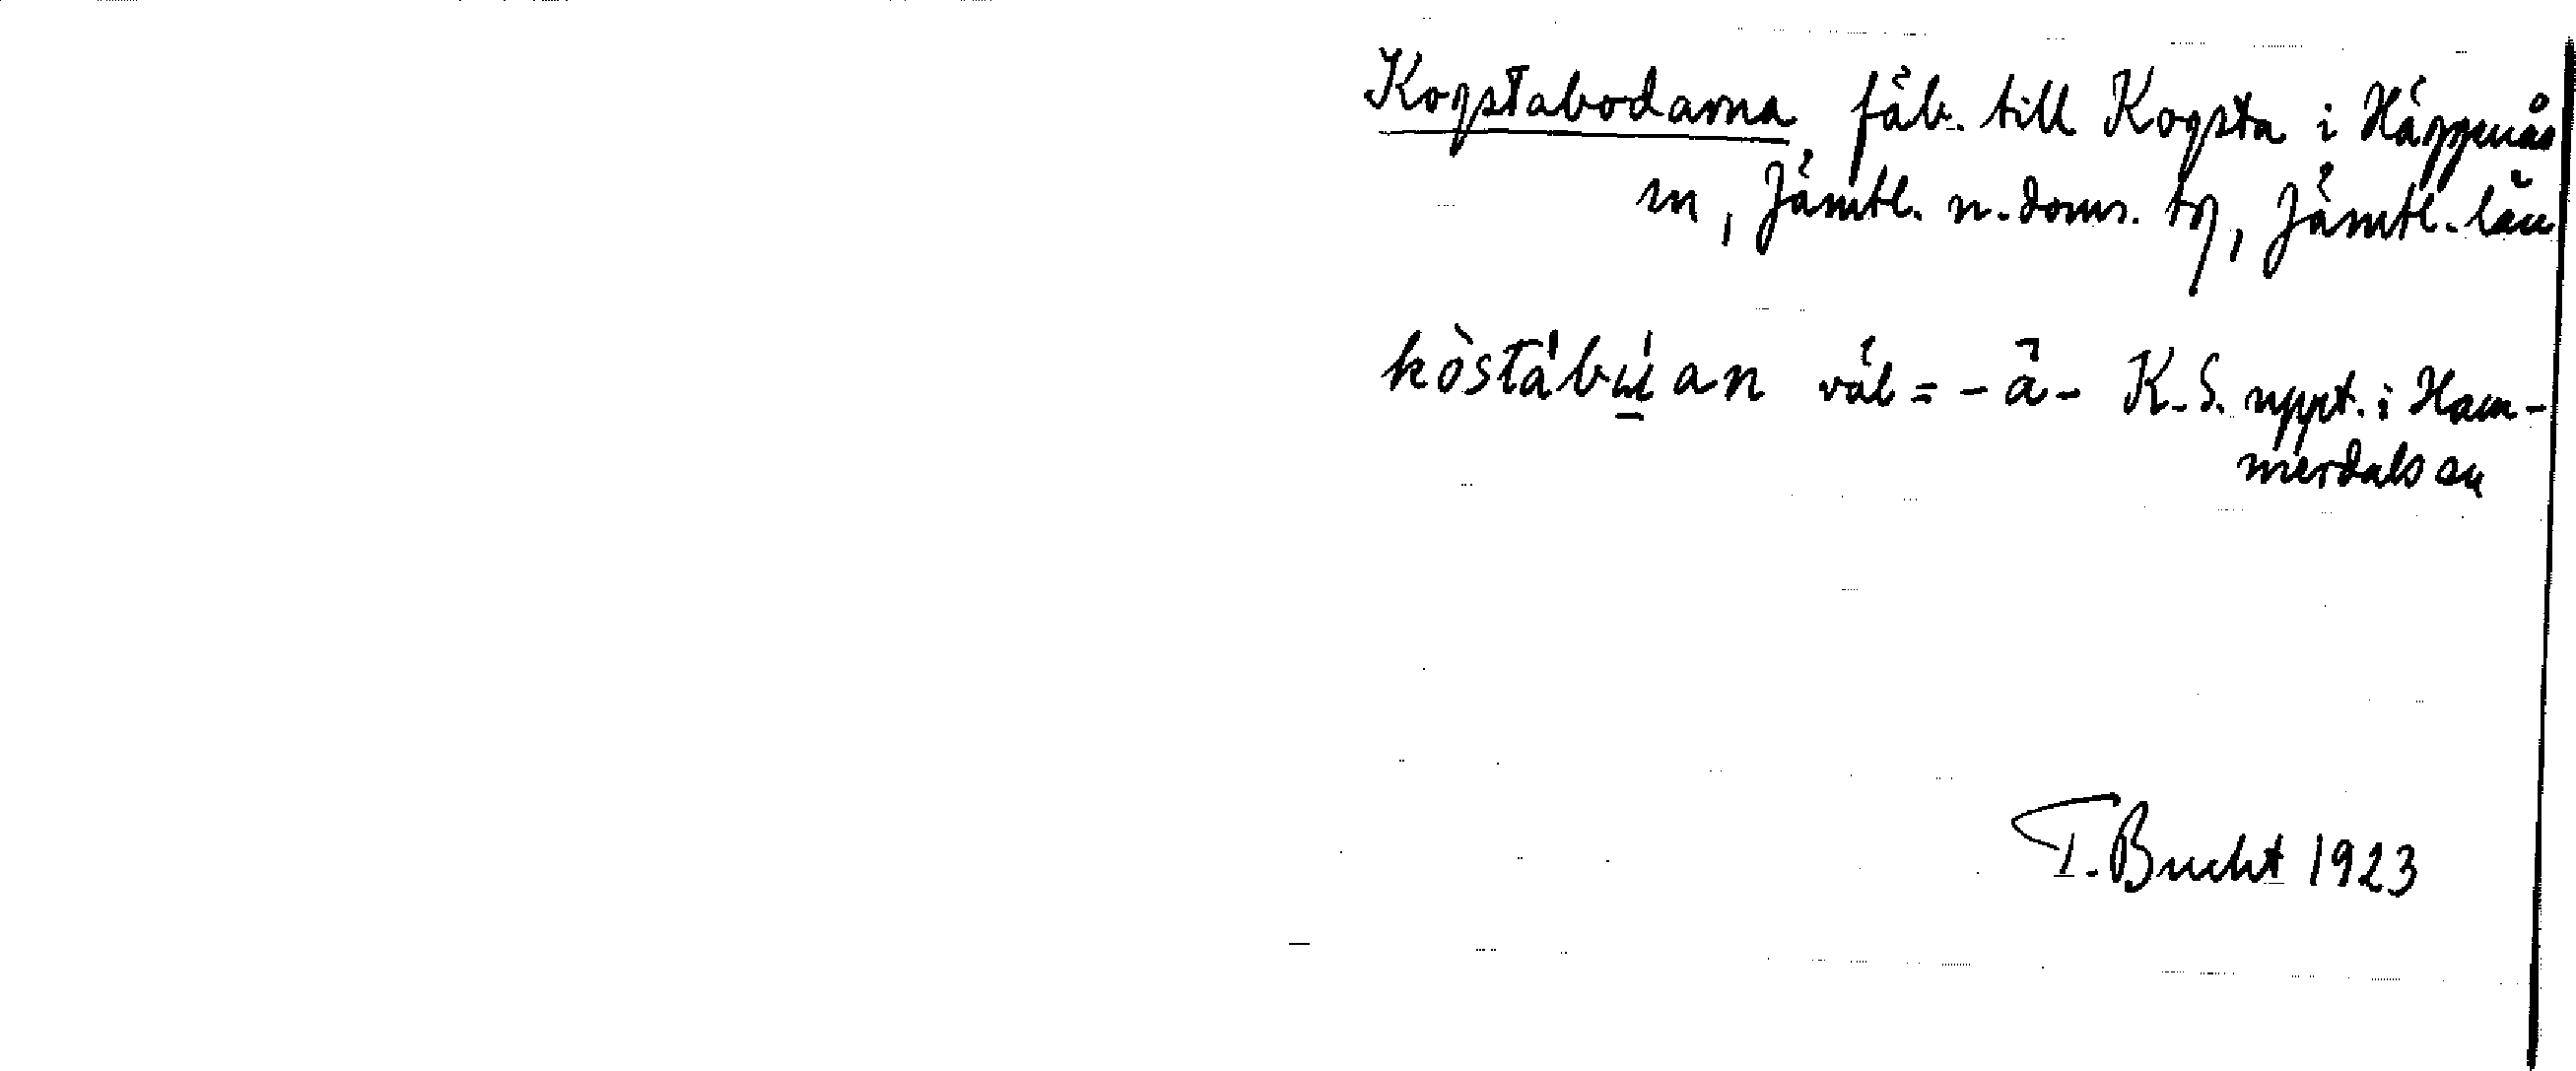 Kogstabodarna, fäb. till Kogsta i Häggenås
sn, Jämtl. n. doms. tg, Jämtl. län
kòstábúan väl = -ä- K.S. uppt. i Ham-
merdals sn
T. Bucht 1923